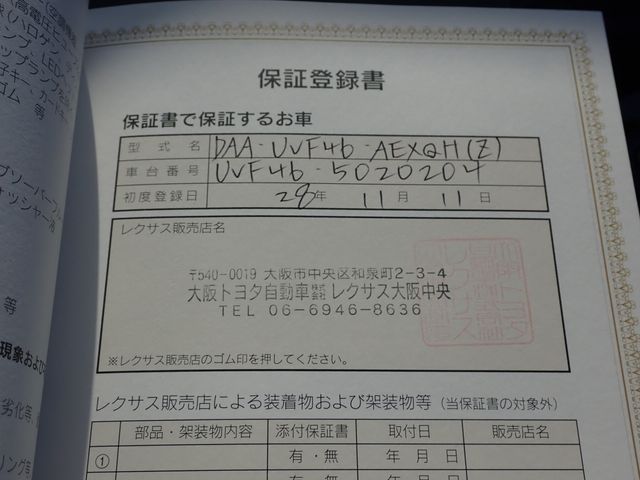 保証登録書
保証書で保証するお車
型式名 DAA-UVF46-AEXQH(Z)
車台番号 UVF46-5020204
初度登録日 28年 11月 11日
レクサス販売店名
〒540-0019 大阪市中央区和泉町2-3-4
大阪トヨタ自動車株式会社 レクサス大阪中央
TEL 06-6946-8636
※レクサス販売店のゴム印を押してください。
レクサス販売店による装着物および架装物等（当保証書の対象外）
部品・架装物内容 添付保証書 取付日 販売店名
① 有・無 年 月 日
有・無 年 月 日
ゴム 等
等
劣化等、
リング等